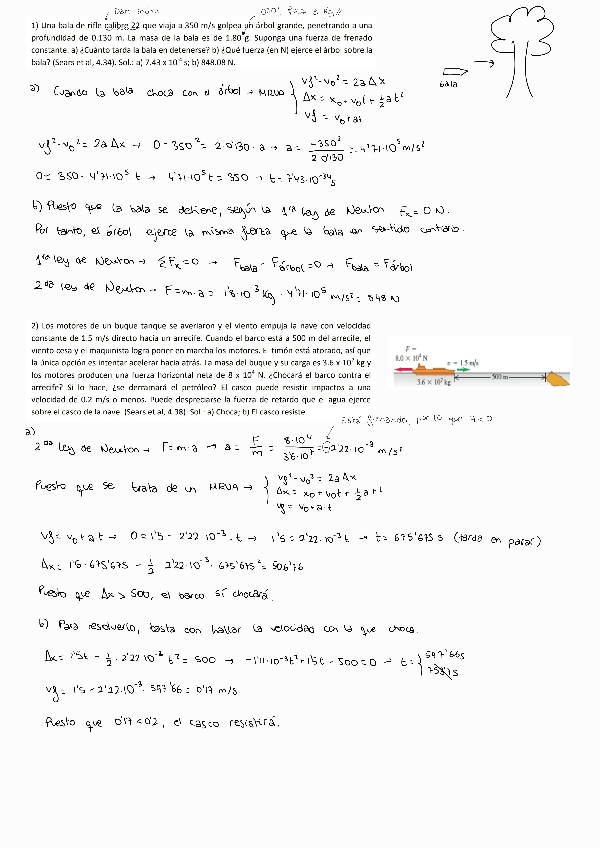 1) Una bala de rifle calibre 22 que viaja a 350 m/s golpea un árbol grande, penetrando a una
profundidad de 0.130 m. La masa de la bala es de 1.80 g. Suponga una fuerza de frenado
constante. a) ¿Cuánto tarda la bala en detenerse? b) ¿Qué fuerza (en N) ejerce el árbol sobre la
bala? (Sears et al, 4.34). Sol.: a) 7.43 x 10⁻⁴ s; b) 848.08 N.
bala
a) Cuando la bala choca con el árbol → MRUA { Vf² - V₀² = 2a Δx
Δx = x₀ + v₀t + ½ a t²
Vf = v₀ + at
Vf² - V₀² = 2a Δx → 0 - 350² = 2·0'130·a → a = -350² / 2·0'130 = -4'71·10⁵ m/s²
0 = 350 - 4'71·10⁵ t → 4'71·10⁵ t = 350 → t = 7'43·10⁻³⁴ s
b) Puesto que la bala se detiene, según la 1ʳᵃ ley de Newton Fₓ = 0 N.
Por tanto, el árbol ejerce la misma fuerza que la bala en sentido contrario.
1ʳᵃ ley de Newton → ΣFₓ = 0 → Fbala - Fárbol = 0 → Fbala = Fárbol
2ᵈᵃ ley de Newton → F = m·a = 1'8·10⁻³ kg · 4'71·10⁵ m/s² = 848 N
2) Los motores de un buque tanque se averiaron y el viento empuja la nave con velocidad
constante de 1.5 m/s directo hacia un arrecife. Cuando el barco está a 500 m del arrecife, el
viento cesa y el maquinista logra poner en marcha los motores. El timón está atorado, así que
la única opción es intentar acelerar hacia atrás. La masa del buque y su carga es 3.6 x 10⁷ kg y
los motores producen una fuerza horizontal neta de 8 x 10⁴ N. ¿Chocará el barco contra el
arrecife? Si lo hace, ¿se derramará el petróleo? El casco puede resistir impactos a una
velocidad de 0.2 m/s o menos. Puede despreciarse la fuerza de retardo que el agua ejerce
sobre el casco de la nave. (Sears et al, 4.38) Sol.: a) Choca; b) El casco resiste
F =
8.0 × 10⁴ N
v = 1.5 m/s
3.6 × 10⁷ kg
500 m
Está frenando, por lo que a<0
a)
2ᵈᵃ ley de Newton → F = m·a → a = F/m = 8·10⁴ / 3'6·10⁷ = (-) 2'22·10⁻³ m/s²
Puesto que se trata de un MRUA → { vf² - v₀² = 2a Δx
Δx = x₀ + v₀t + ½ a t²
vf = v₀ + a·t
Vf = v₀ + a t → 0 = 1'5 - 2'22·10⁻³·t → 1'5 = 2'22·10⁻³ t → t = 675'675 s (tarda en parar)
Δx = 1'5·675'675 - ½ 2'22·10⁻³·675'675² = 506'76
Puesto que Δx > 500, el barco sí chocará.
b) Para resolverlo, basta con hallar la velocidad con la que choca.
Δx = 1'5t - ½·2'22·10⁻³ t² = 500 → -1'11·10⁻³t² + 1'5t - 500 = 0 → t = { 597'66 s
Vf = 1'5 - 2'22·10⁻³·597'66 = 0'17 m/s
Puesto que 0'17 < 0'2, el casco resistirá.